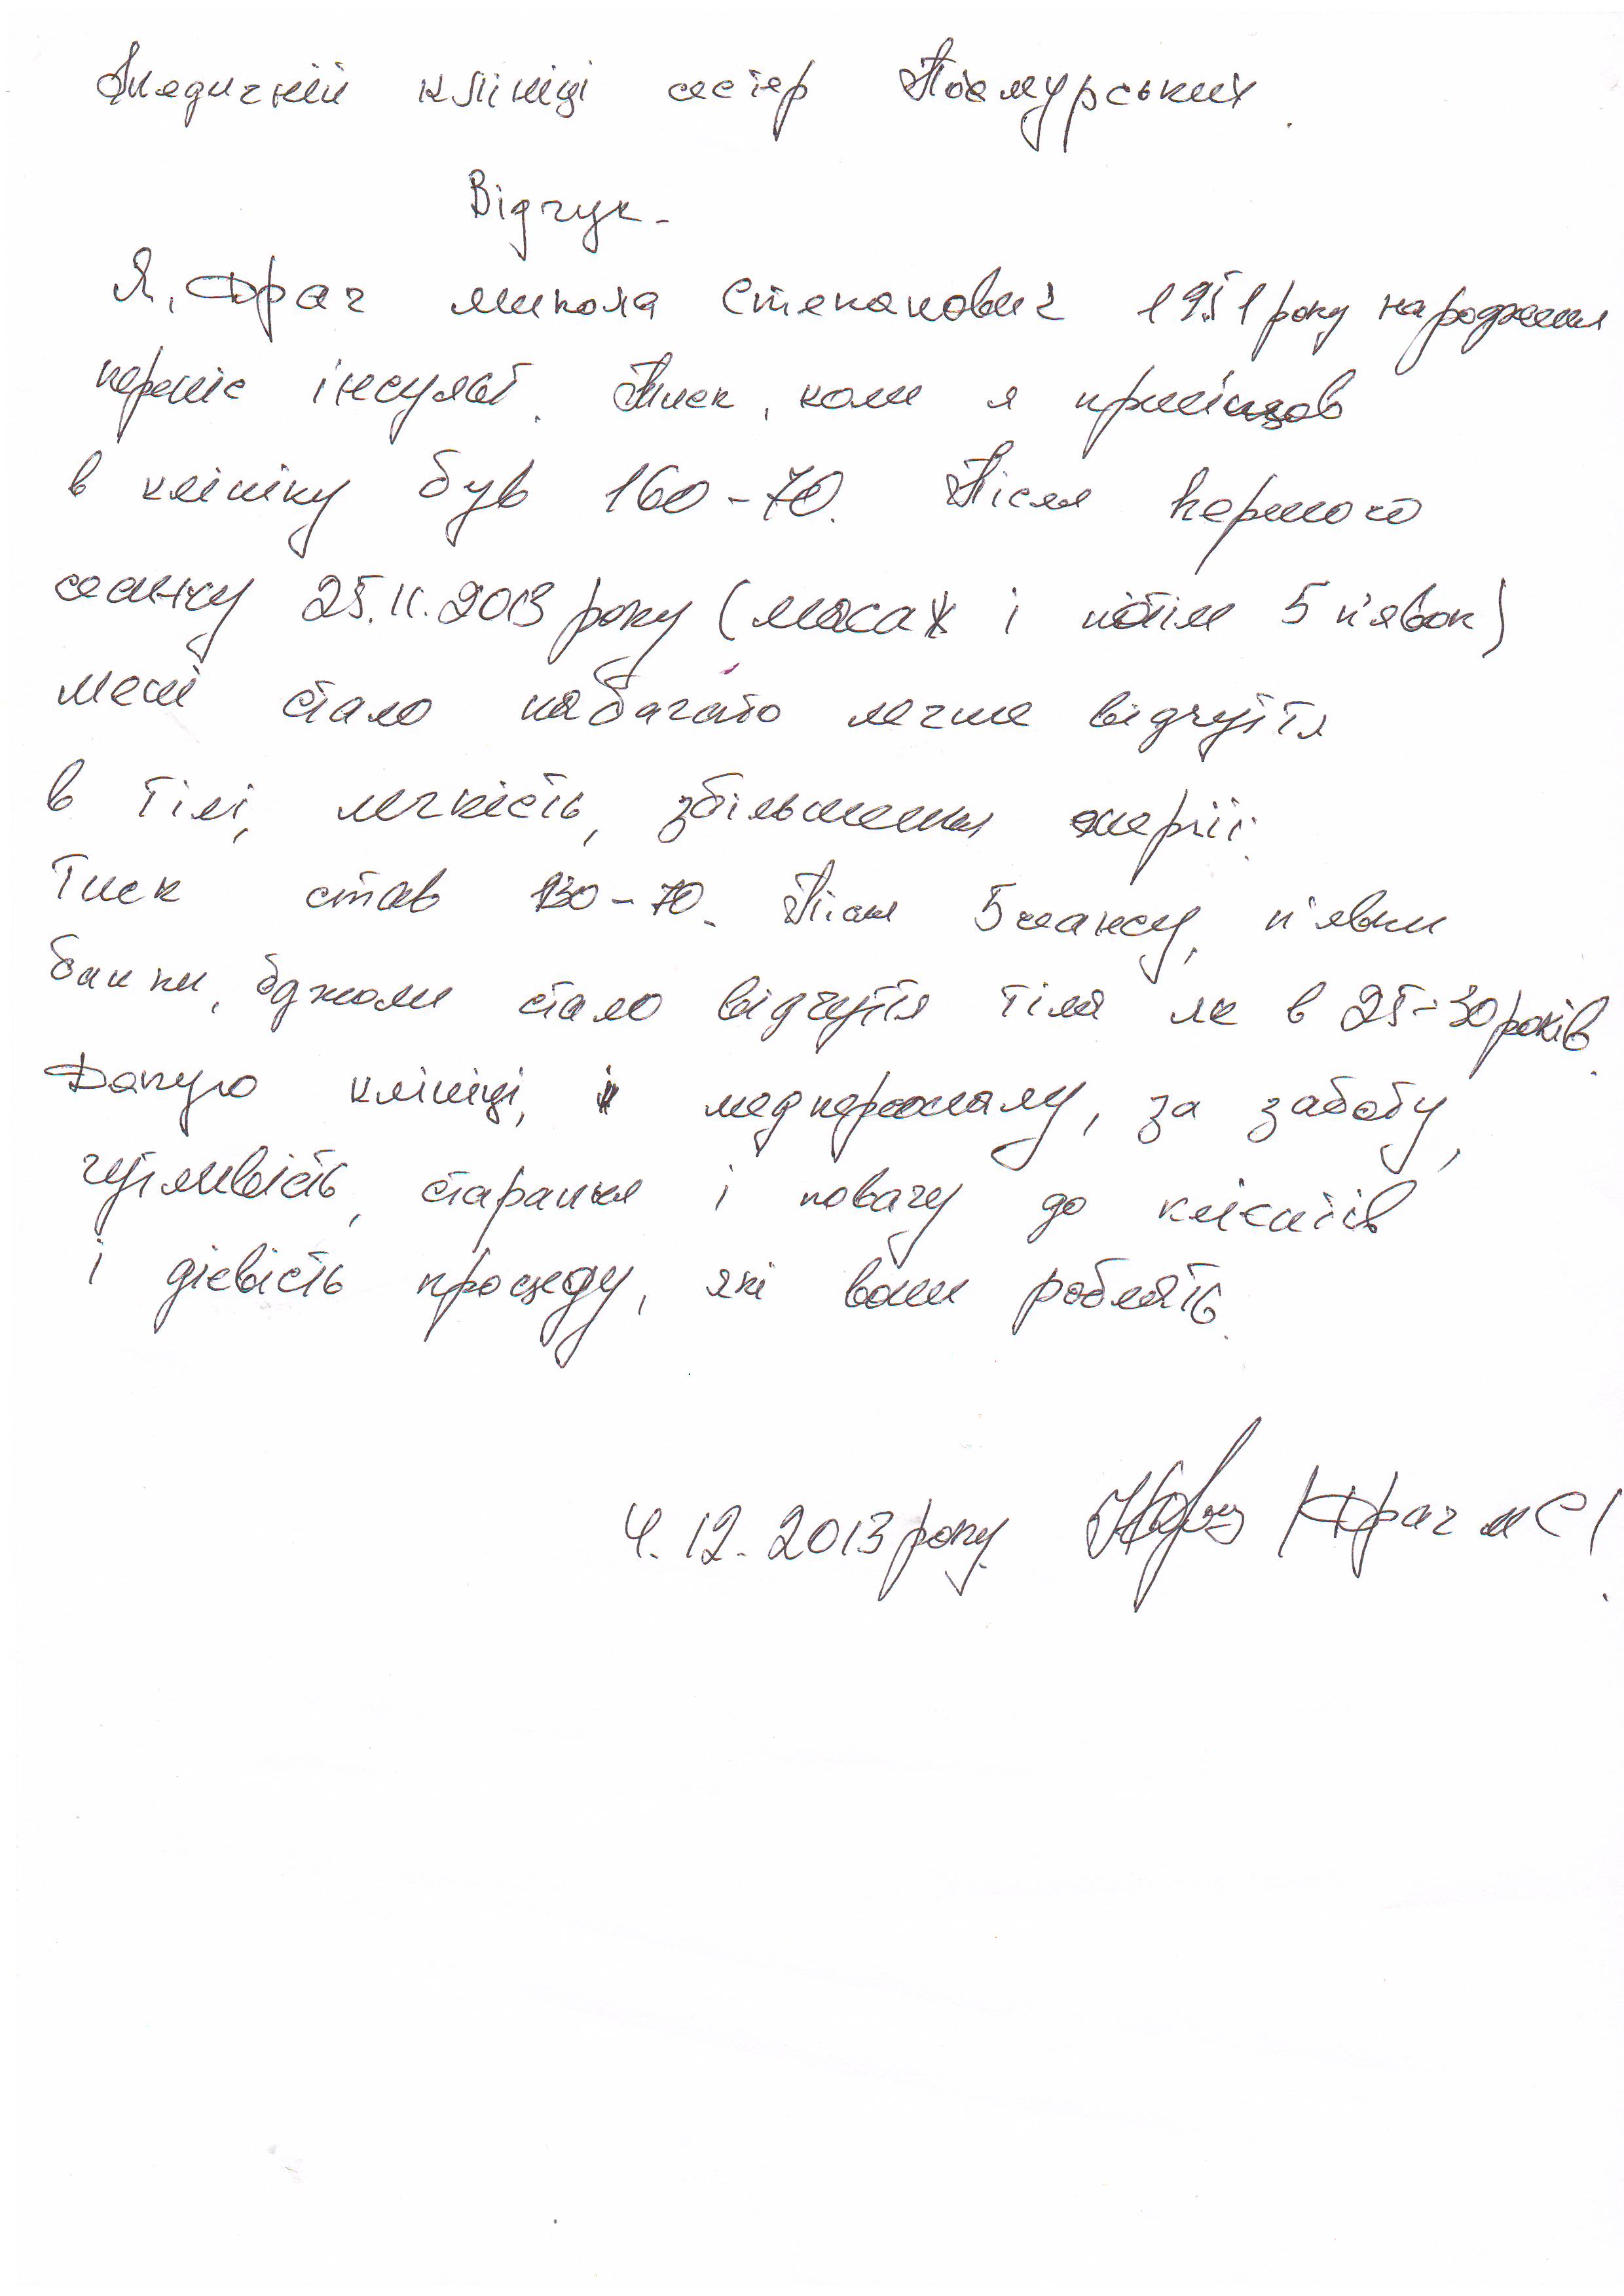 Медичній клініці сестер
Відгук.
Я, Драч Микола Степанович 1951 року народження
переніс інсульт. Тиск, коли я прийшов
в клініку був 160-70. Після першого
сеансу 25.11.2013 року (масаж і потім 5 п'явок)
мені стало набагато легше відчуття
в тілі, легкість, збільшення енергії.
Тиск став 130-70. Після 5 сеансу, п'явки
банки, бджоли стало відчуття тіла як в 25-30 років.
Дякую клініці, і медперсоналу, за заботу,
чутливість, старання і повагу до клієнтів
і дієвість процеду, які вони роблять.
4.12.2013 року /Драч МС/